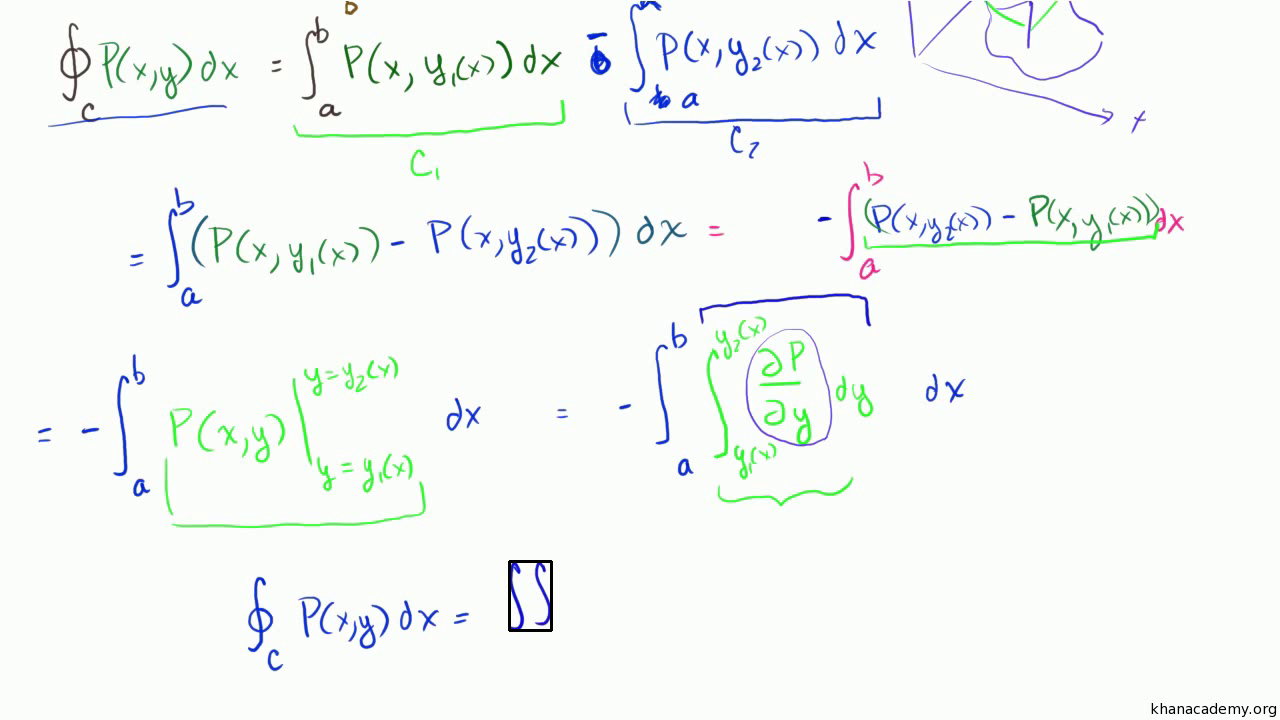 ∮_C P(x,y) dx = ∫_a^b P(x, y₁(x)) dx - ∫_a P(x, y₂(x)) dx
C₁ C₂ x
= ∫_a^b (P(x, y₁(x)) - P(x, y₂(x))) dx = - ∫_a^b (P(x, y₂(x)) - P(x, y₁(x))) dx
= - ∫_a^b P(x,y) |_{y = y₁(x)}^{y = y₂(x)} dx = - ∫_a^b ∫_{y₁(x)}^{y₂(x)} ∂P/∂y dy dx
∮_C P(x,y) dx = ∬
khanacademy.org